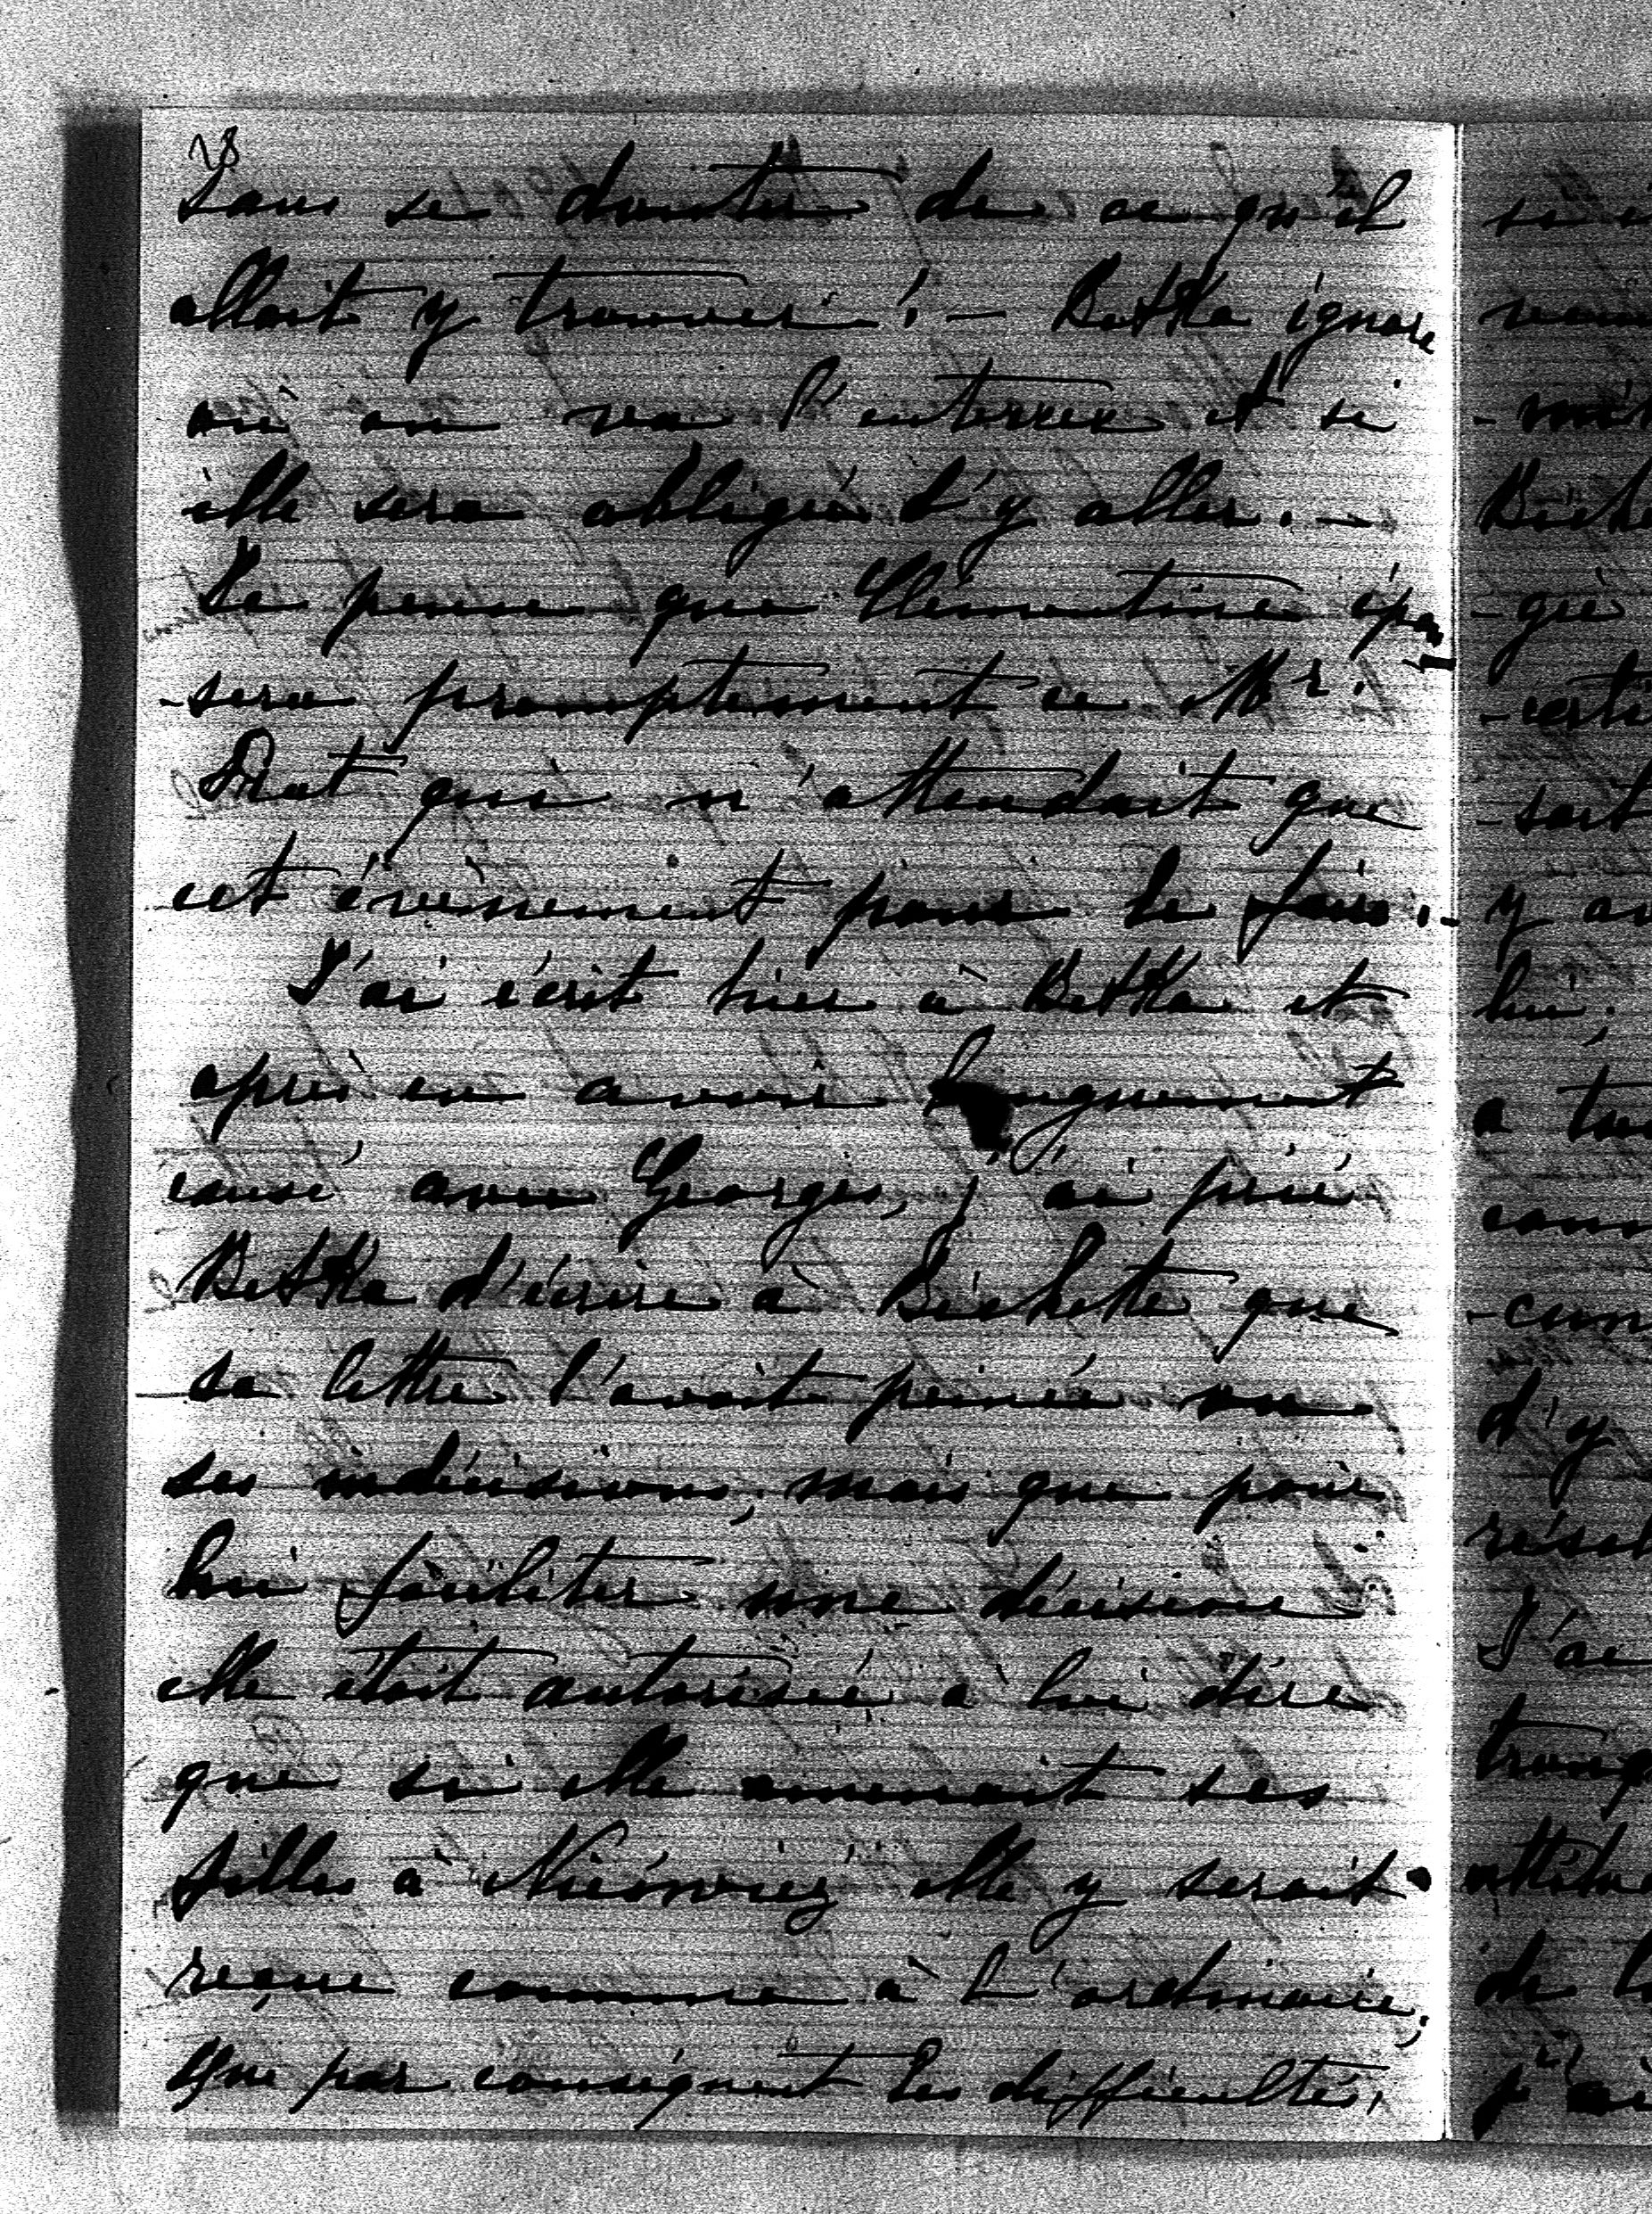 28
sans se douter de ce qu'il
allait y trouver ! — Betka ignore
où on va l'enterrer et si
elle sera obligée d'y aller. —
Je pense que Clémentine épou
-sera promptement ce Mr.
Prat qui n'attendait que
cet évènement pour le faire. -
J'ai écrit hier à Betka et
après en avoir longuement
causé avec Georges, j'ai prié
Betka d'écrire à Bichette que
sa lettre l'avait peinée vu
ses indécisions, mais que pour
lui faciliter une décision
elle était autorisée à lui dire
que si elle amenait ses
filles à elle y serait
reçue comme à l'ordinaire,
que par conséquent les difficultés,